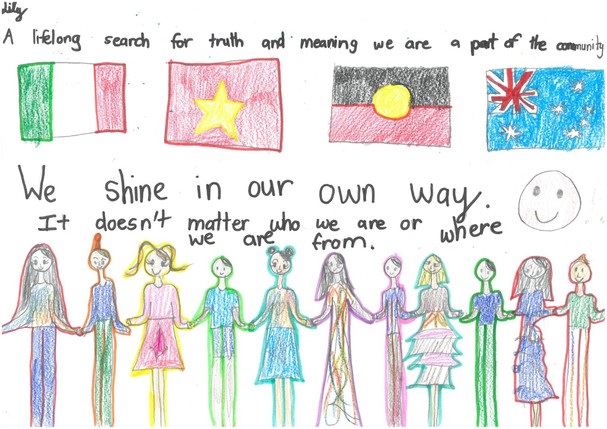 Lily
A lifelong search for truth and meaning we are a part of the community
We shine in our own way.
It doesn't matter who we are or where
we are from.